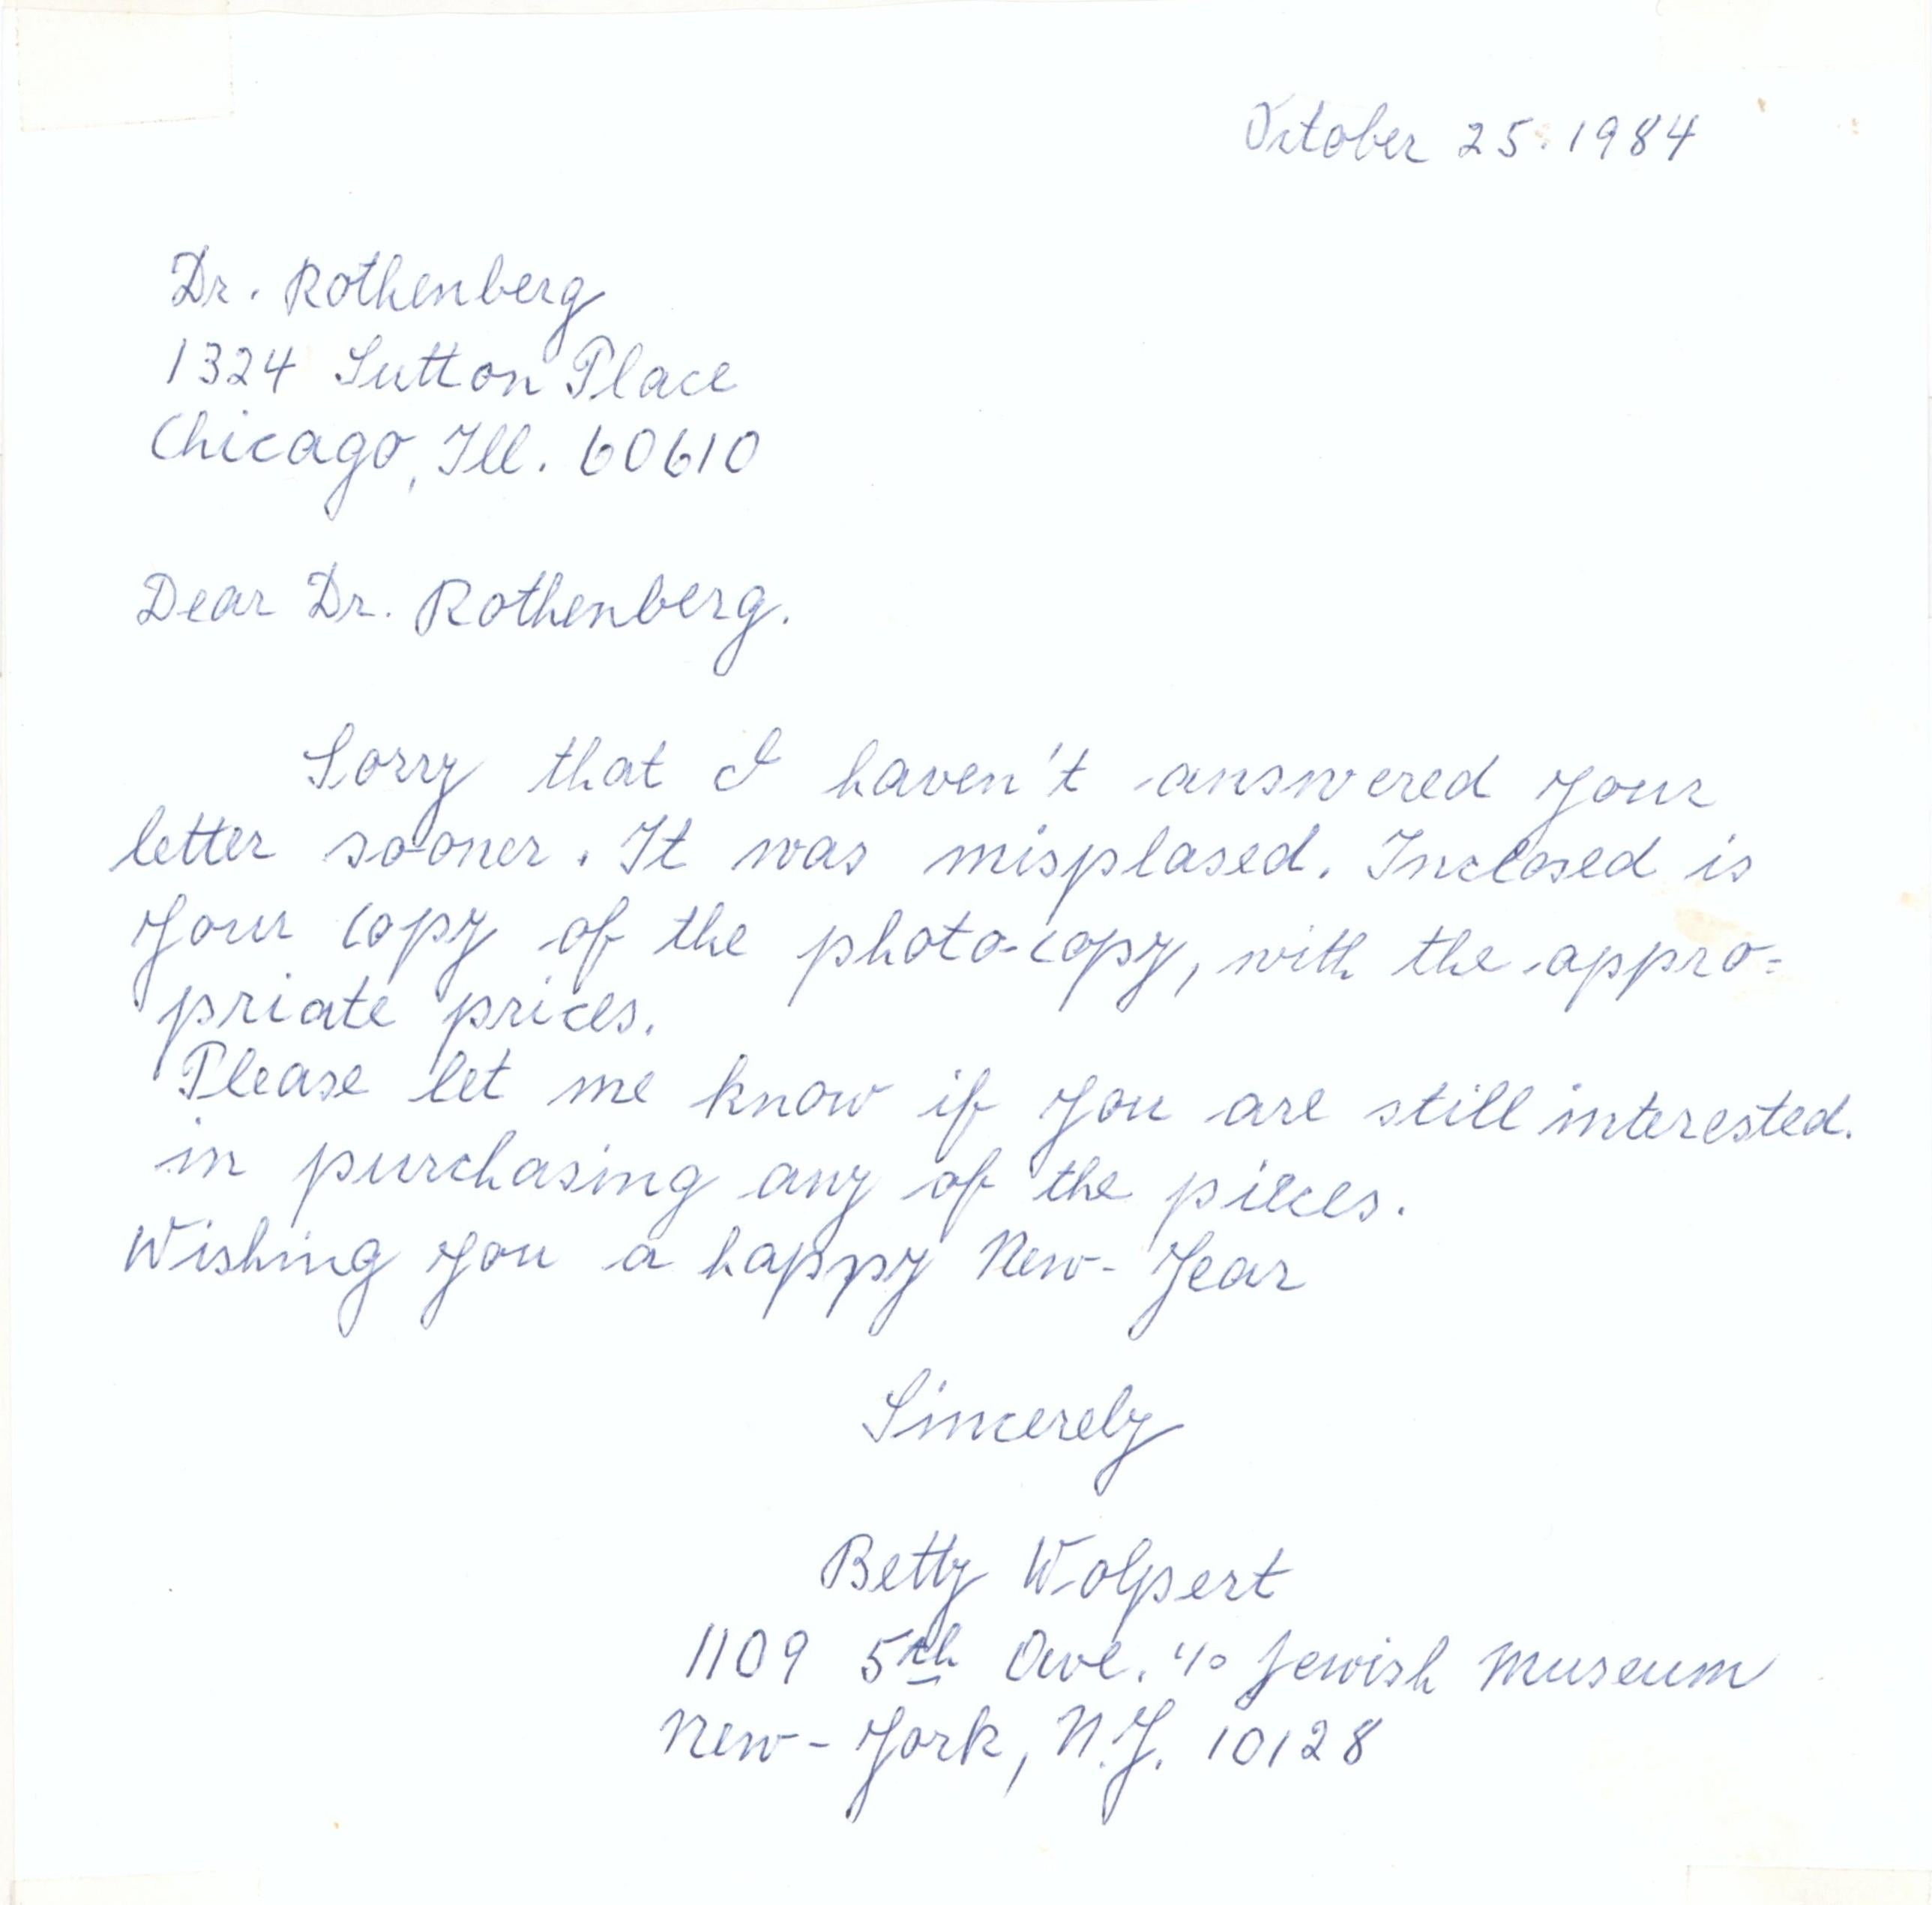 October 25. 1984
Dr. Rothenberg
1324 Sutton Place
Chicago, Ill. 60610
Dear Dr. Rothenberg.
Sorry that I haven't answered your
letter sooner. It was misplased. Inclosed is
your copy of the photo-copy, with the appro=
priate prices.
Please let me know if you are still interested.
in purchasing any of the pieces.
Wishing you a happy New-Year
Sincerely
Betty Wolpert
1109 5th Ave. c/o Jewish Museum
New-York, N.Y. 10128